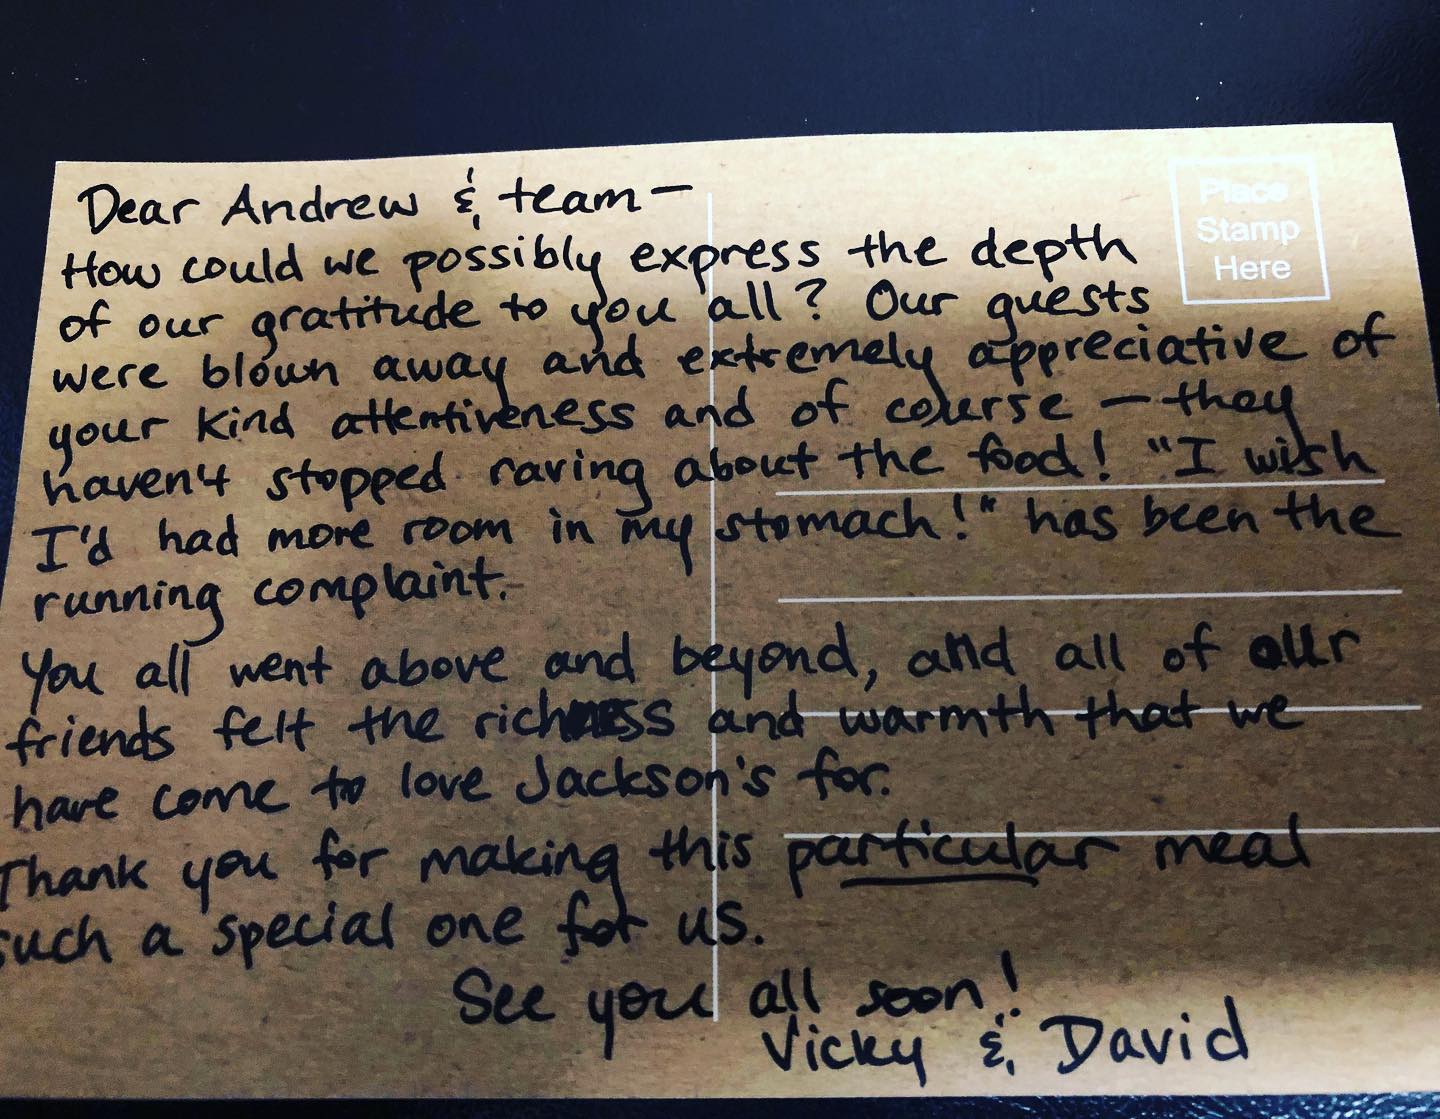 Dear Andrew & team—
How could we possibly express the depth
of our gratitude to you all? Our guests
were blown away and extremely appreciative of
your kind attentiveness and of course — they
haven't stopped raving about the food! "I wish
I'd had more room in my stomach!" has been the
running complaint.
You all went above and beyond, and all of our
friends felt the richness and warmth that we
have come to love Jackson's for.
Thank you for making this particular meal
such a special one for us.
See you all soon!
Vicky & David
Place
Stamp
Here